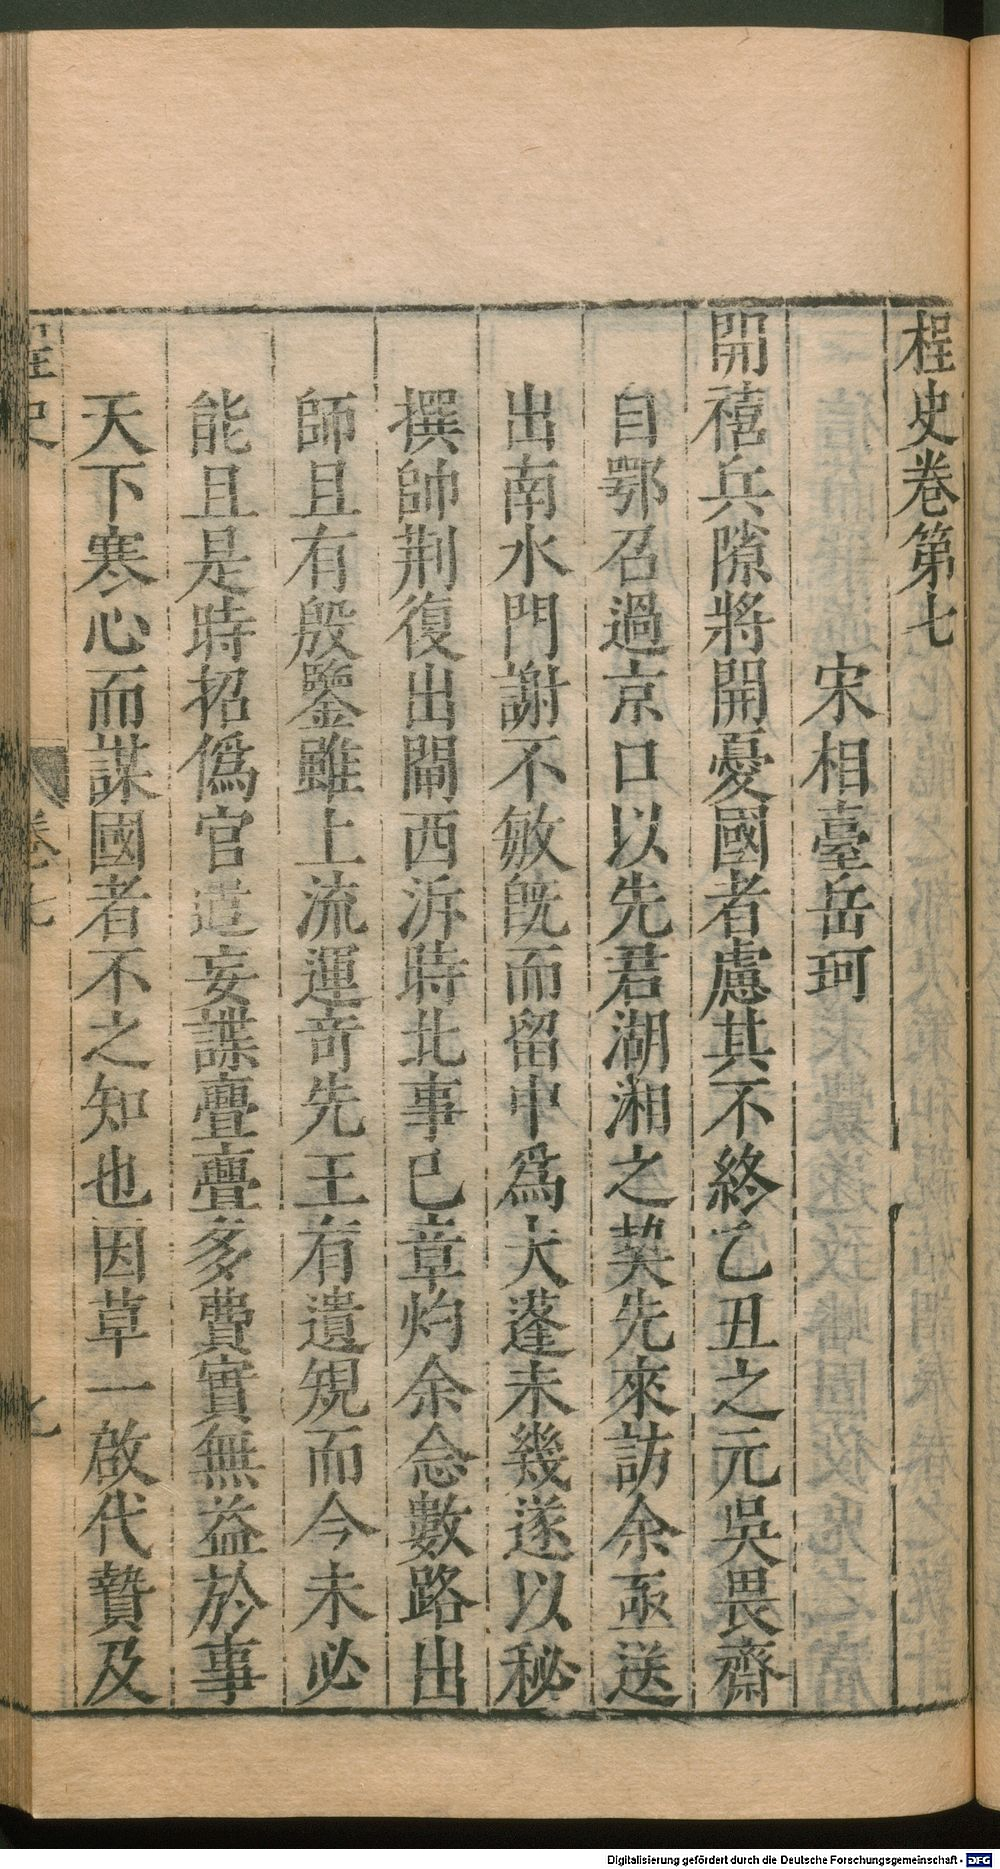 桯史卷第七
宋相臺岳珂
開禧兵隙將開憂國者慮其不終乙丑之元吳畏齋
自鄂召過京口以先君湖湘之契先來訪余亟送
出南水門謝不敏旣而留中爲大蓬未幾遂以秘
撰帥荆復出閘西泝時北事已章灼余念數路出
師且有殷鑒雖上流運奇先王有遺規而今未必
能且是時招僞官遣妄諜亹亹多費實無益於事
天下寒心而謀國者不之知也因草一啟代贄及
桯史
卷七
Digitalisierung gefördert durch die Deutsche Forschungsgemeinschaft - DFG